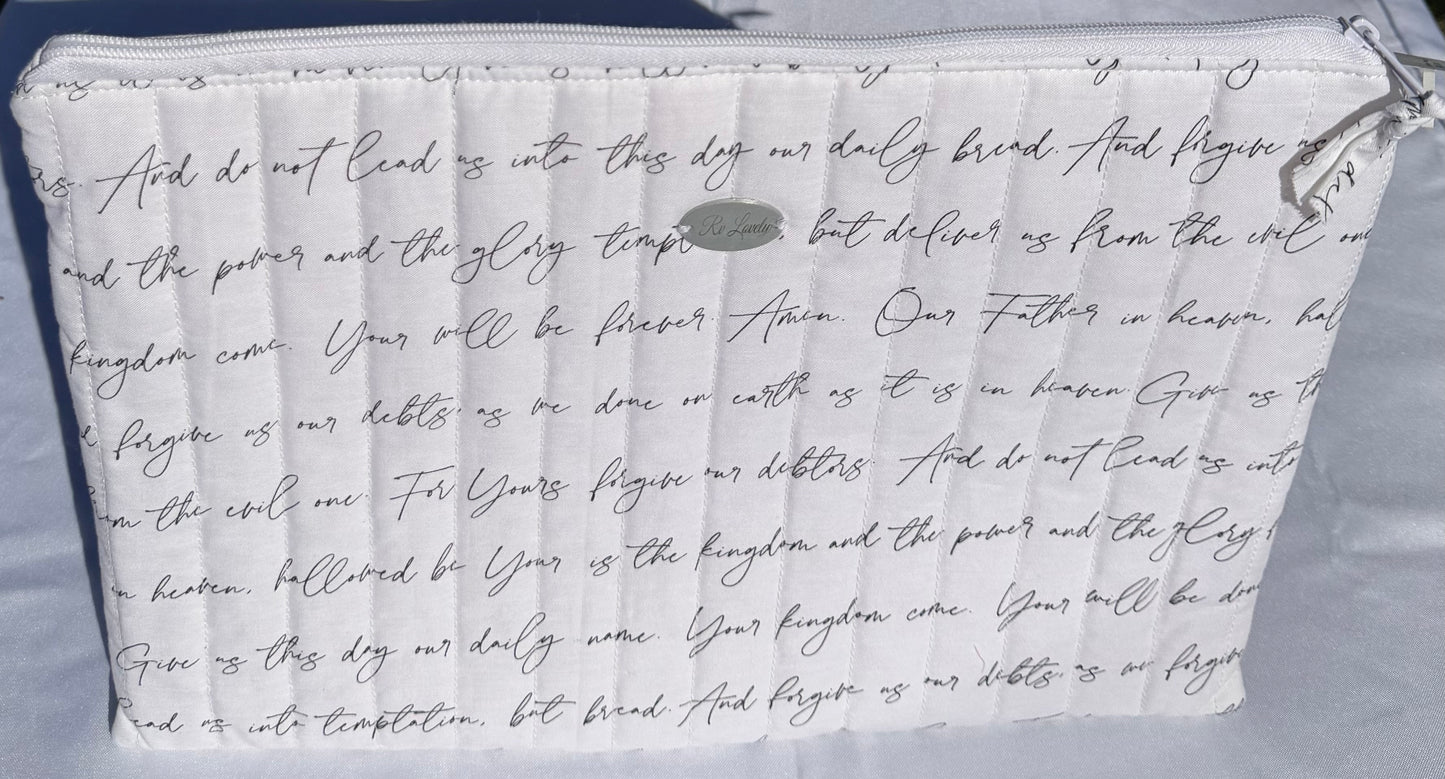 And do not lead us into this day our daily bread. And forgive us
and the power and the glory temp , but deliver us from the evil one
Rv Lovely
kingdom come. Your will be forever. Amen. Our Father in heaven, hal
forgive us our debts, as we done on earth as it is in heaven. Give us th
om the evil one. For Yours forgive our debtors. And do not lead us into
in heaven, hallowed be Your is the kingdom and the power and the glory
Give us this day our daily name. Your kingdom come. Your will be done
lead us into temptation, but bread. And forgive us our debts, as we forgive